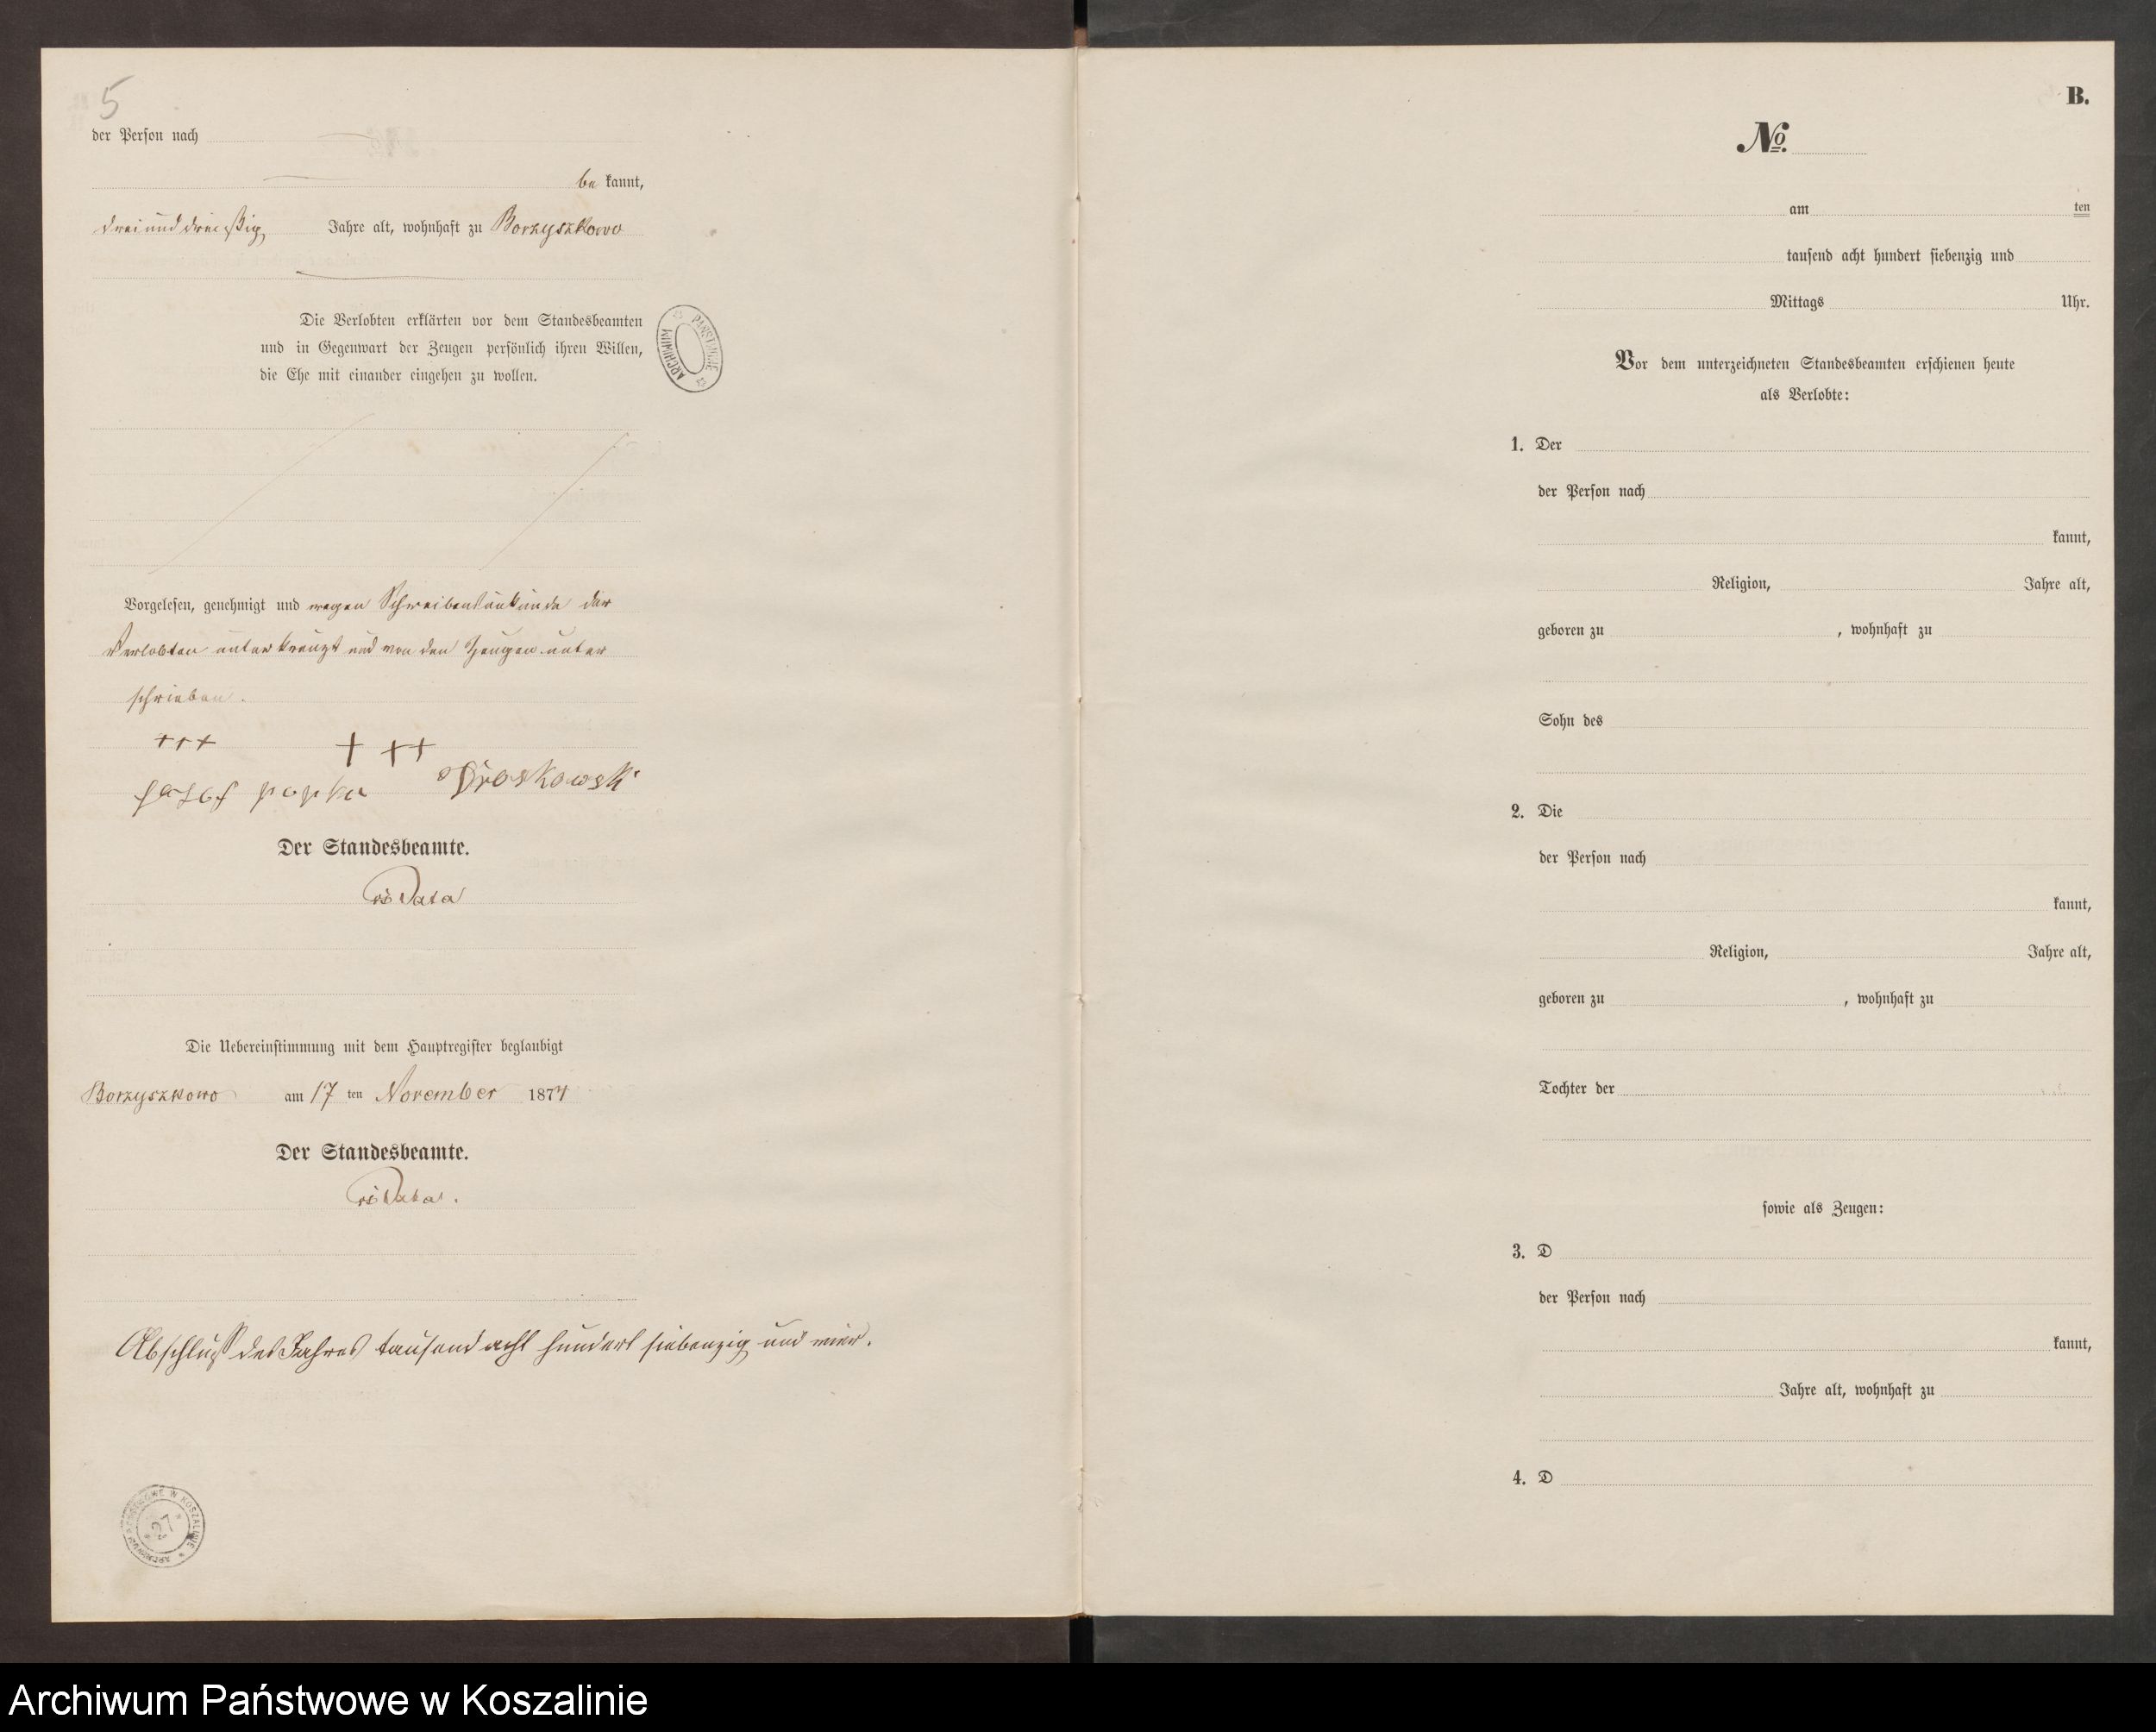 5
der Person nach
be kannt,
drei und dreißig Jahre alt, wohnhaft zu Borzyszkowo
Die Verlobten erklärten vor dem Standesbeamten
und in Gegenwart der Zeugen persönlich ihren Willen,
die Ehe mit einander eingehen zu wollen.
ARCHIWUM PAŃSTWOWE
Vorgelesen, genehmigt und wegen Schreibensunkunde der
Verlobten unterkreuzt und von den Zeugen unter
schrieben.
+++ +++
Josef popka
Der Standesbeamte.
Die Uebereinstimmung mit dem Hauptregister beglaubigt
Borzyszkowo am 17 ten November 1874
Der Standesbeamte.
Abschluß des Jahres tausend acht hundert siebenzig und vier.
ARCHIWUM PAŃSTWOWE W KOSZALINIE
27
B.
No.
am ten
tausend acht hundert siebenzig und
Mittags Uhr.
Vor dem unterzeichneten Standesbeamten erschienen heute
als Verlobte:
1. Der
der Person nach
kannt,
Religion, Jahre alt,
geboren zu , wohnhaft zu
Sohn des
2. Die
der Person nach
kannt,
Religion, Jahre alt,
geboren zu , wohnhaft zu
Tochter der
sowie als Zeugen:
3. D
der Person nach
kannt,
Jahre alt, wohnhaft zu
4. D
Archiwum Państwowe w Koszalinie